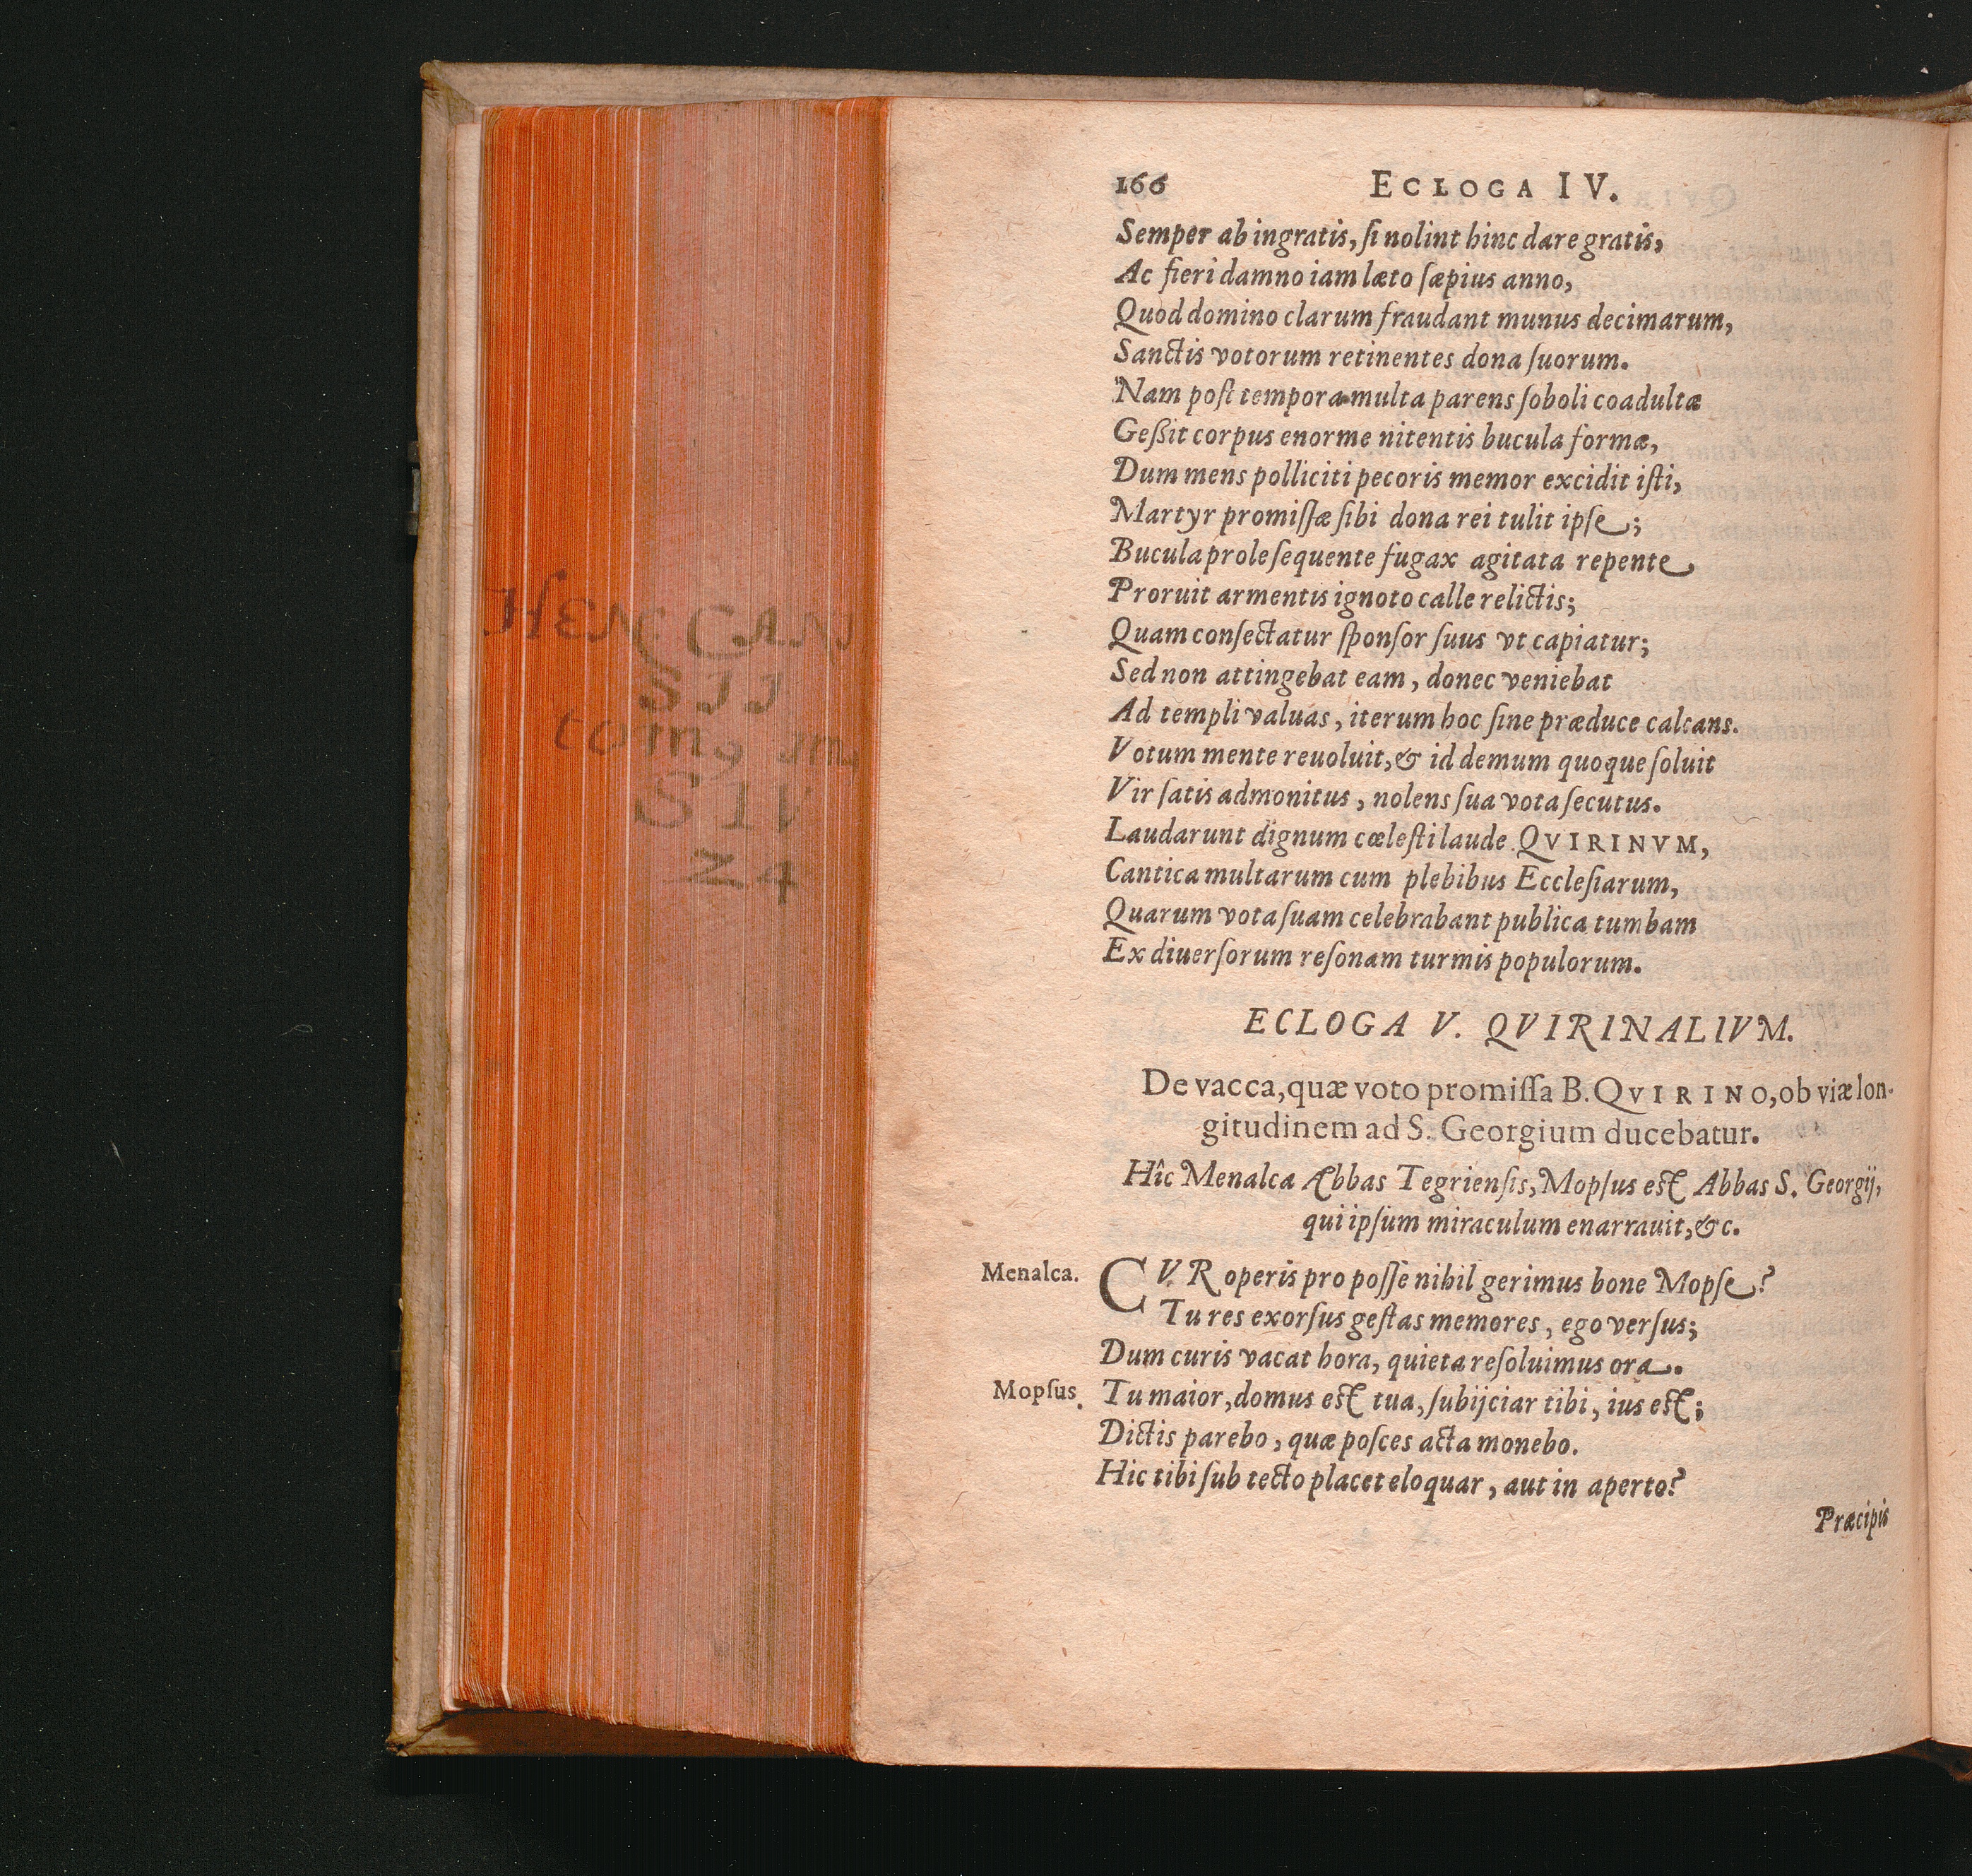 166 ECLOGA IV.
Semper ab ingratis, ſi nolint hinc dare gratis,
Ac fieri damno iam læto ſæpius anno,
Quod domino clarum fraudant munus decimarum,
Sanctis votorum retinentes dona ſuorum.
Nam poſt tempora multa parens ſoboli coadultæ
Geßit corpus enorme nitentis bucula formæ,
Dum mens polliciti pecoris memor excidit iſti,
Martyr promiſſæ ſibi dona rei tulit ipſe;
Bucula prole ſequente fugax agitata repente
Proruit armentis ignoto calle relictis;
Quam conſectatur ſponſor ſuus vt capiatur;
Sed non attingebat eam, donec veniebat
Ad templi valuas, iterum hoc ſine præduce calcans.
Votum mente reuoluit, & id demum quoque ſoluit
Vir ſatis admonitus, nolens ſua vota ſecutus.
Laudarunt dignum cœleſti laude QVIRINVM,
Cantica multarum cum plebibus Eccleſiarum,
Quarum vota ſuam celebrabant publica tumbam
Ex diuerſorum reſonam turmis populorum.
ECLOGA V. QVIRINALIVM.
De vacca, quæ voto promiſſa B. QVIRINO, ob viæ lon-
gitudinem ad S. Georgium ducebatur.
Hîc Menalca Abbas Tegrienſis, Mopſus eſt Abbas S. Georgij,
qui ipſum miraculum enarrauit, &c.
Menalca. CVR operis pro poſſe nihil gerimus bone Mopſe?
Tu res exorſus geſtas memores, ego verſus;
Dum curis vacat hora, quieta reſoluimus ora.
Mopſus. Tu maior, domus eſt tua, ſubijciar tibi, ius eſt;
Dictis parebo, quæ poſces acta monebo.
Hic tibi ſub tecto placet eloquar, aut in aperto?
Præcipis
HEN CAN
SIJ
tomo